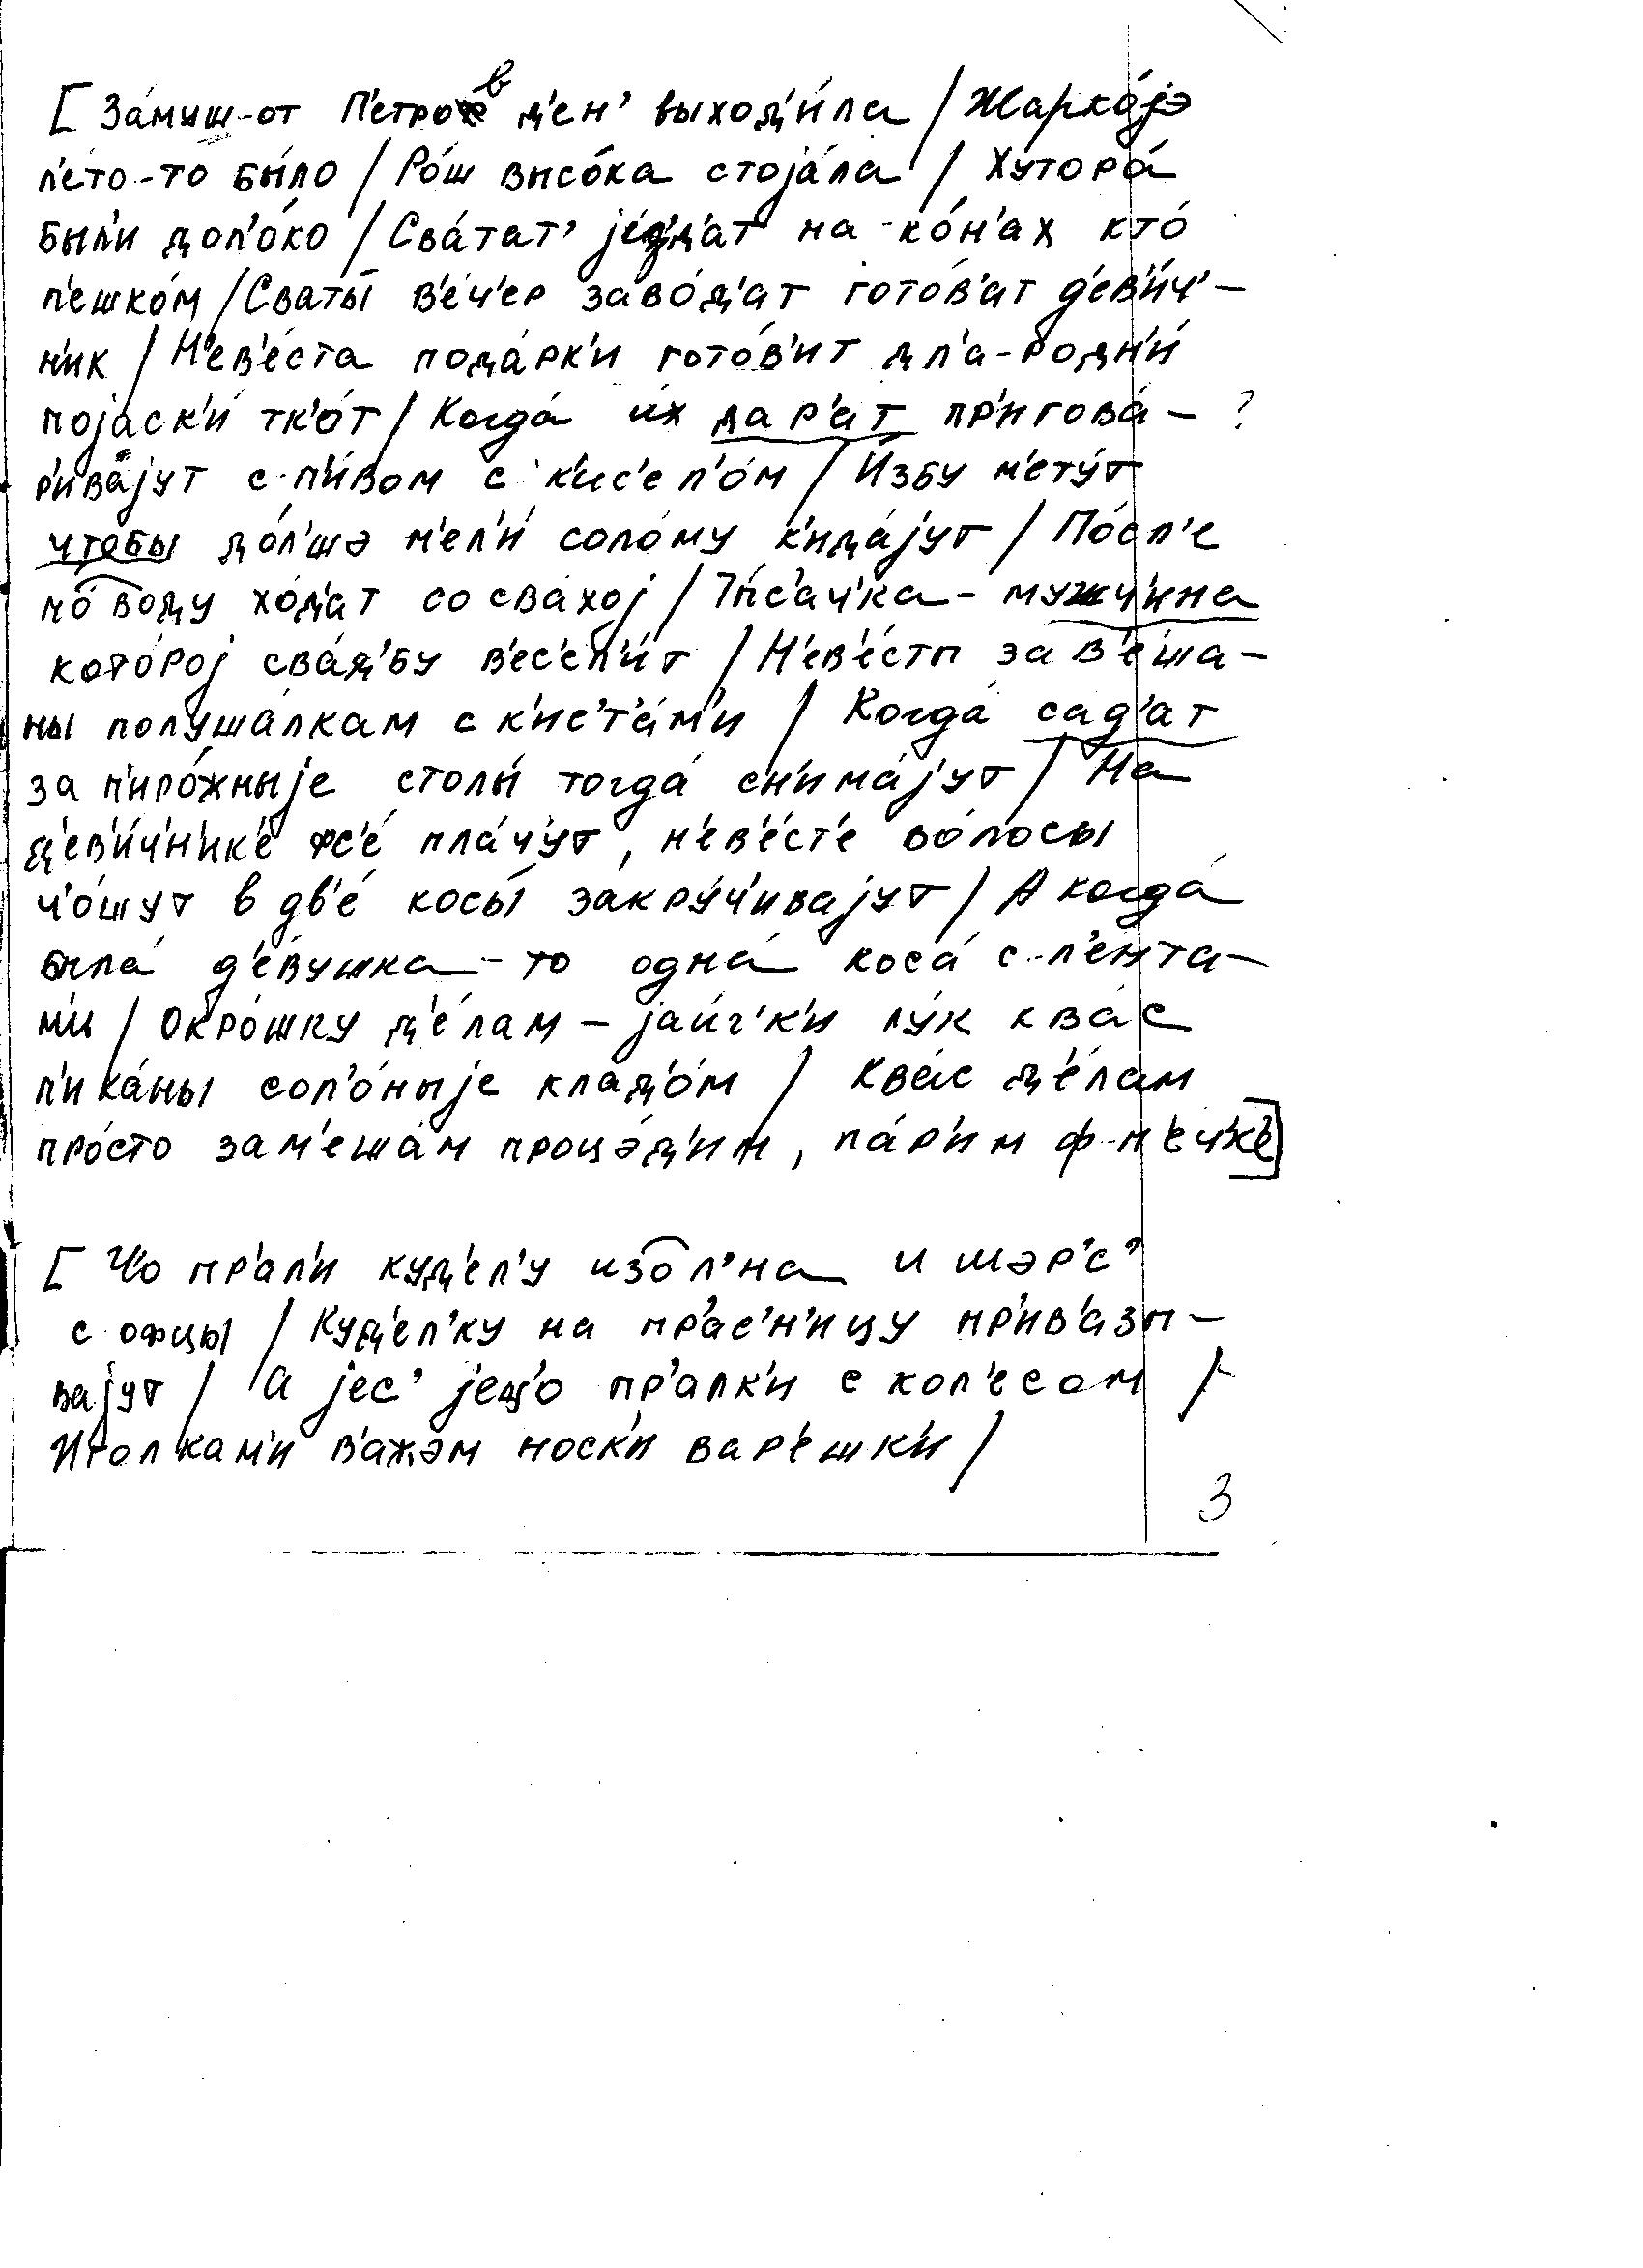 [За́муш-от П'етров д'ен' выход'и́ла / Жарко́јэ
л'е́то-то бы́ло / Ро́ш высо́ка стоја́ла / Хутора́
был'и дол'о́ко / Сва́тат' је́зд'ат на-ко́н'ах кто́
п'ешко́м / Сваты́ в'е́ч'ер заво́д'ат гото́в'ат д'ев'и́ч'-
н'ик / Н'ев'е́ста пода́рк'и гото́в'ит дл'а-родн'и́
појаск'и́ тк'о́т / Когда́ их дар'ат пр'игова́- ?
р'ивајут с-п'и́вом с к'ис'ел'о́м / И́збу м'ету́т
чтобы до́л'шэ м'ел'и́ соло́му к'ида́јут / По́сл'е
по́ воду хо́д'ат со сва́хој / Ты́с'ач'ка - мужч'ина
кото́рој сва́д'бу в'ес'ел'и́т / Н'ев'е́сты зав'е́ша-
ны полуша́лкам с к'ис'т'а́м'и / Когда́ сад'ат
за п'иро́жныје столы́ тогда́ сн'има́јут / На
д'ев'и́ч'н'ик'е фс'е́ пла́ч'ут, н'ев'е́ст'е во́лосы
ч'о́шут в дв'е́ косы́ закру́ч'ивајут / А когда́
была́ д'е́вушка-то одна́ коса́ с-л'е́нта-
м'и / Окро́шку д'е́лам - јаи́ч'к'и лу́к ква́с
п'ика́ны сол'о́ныје клад'о́м / Ква́с д'е́лам
про́сто зам'еша́м процэ́д'им, па́р'им ф-п'е́ч'к'е]
[Ч'о пр'ал'и куд'ел'у изо л'на и шэр'с'
с офцы / Куд'ел'ку на пр'ас'н'ицу пр'ив'азы-
вајут / А јес' јещ'о пр'алк'и с кол'есом /
Иголкам'и в'ажэм носк'и вар'ешк'и /
3